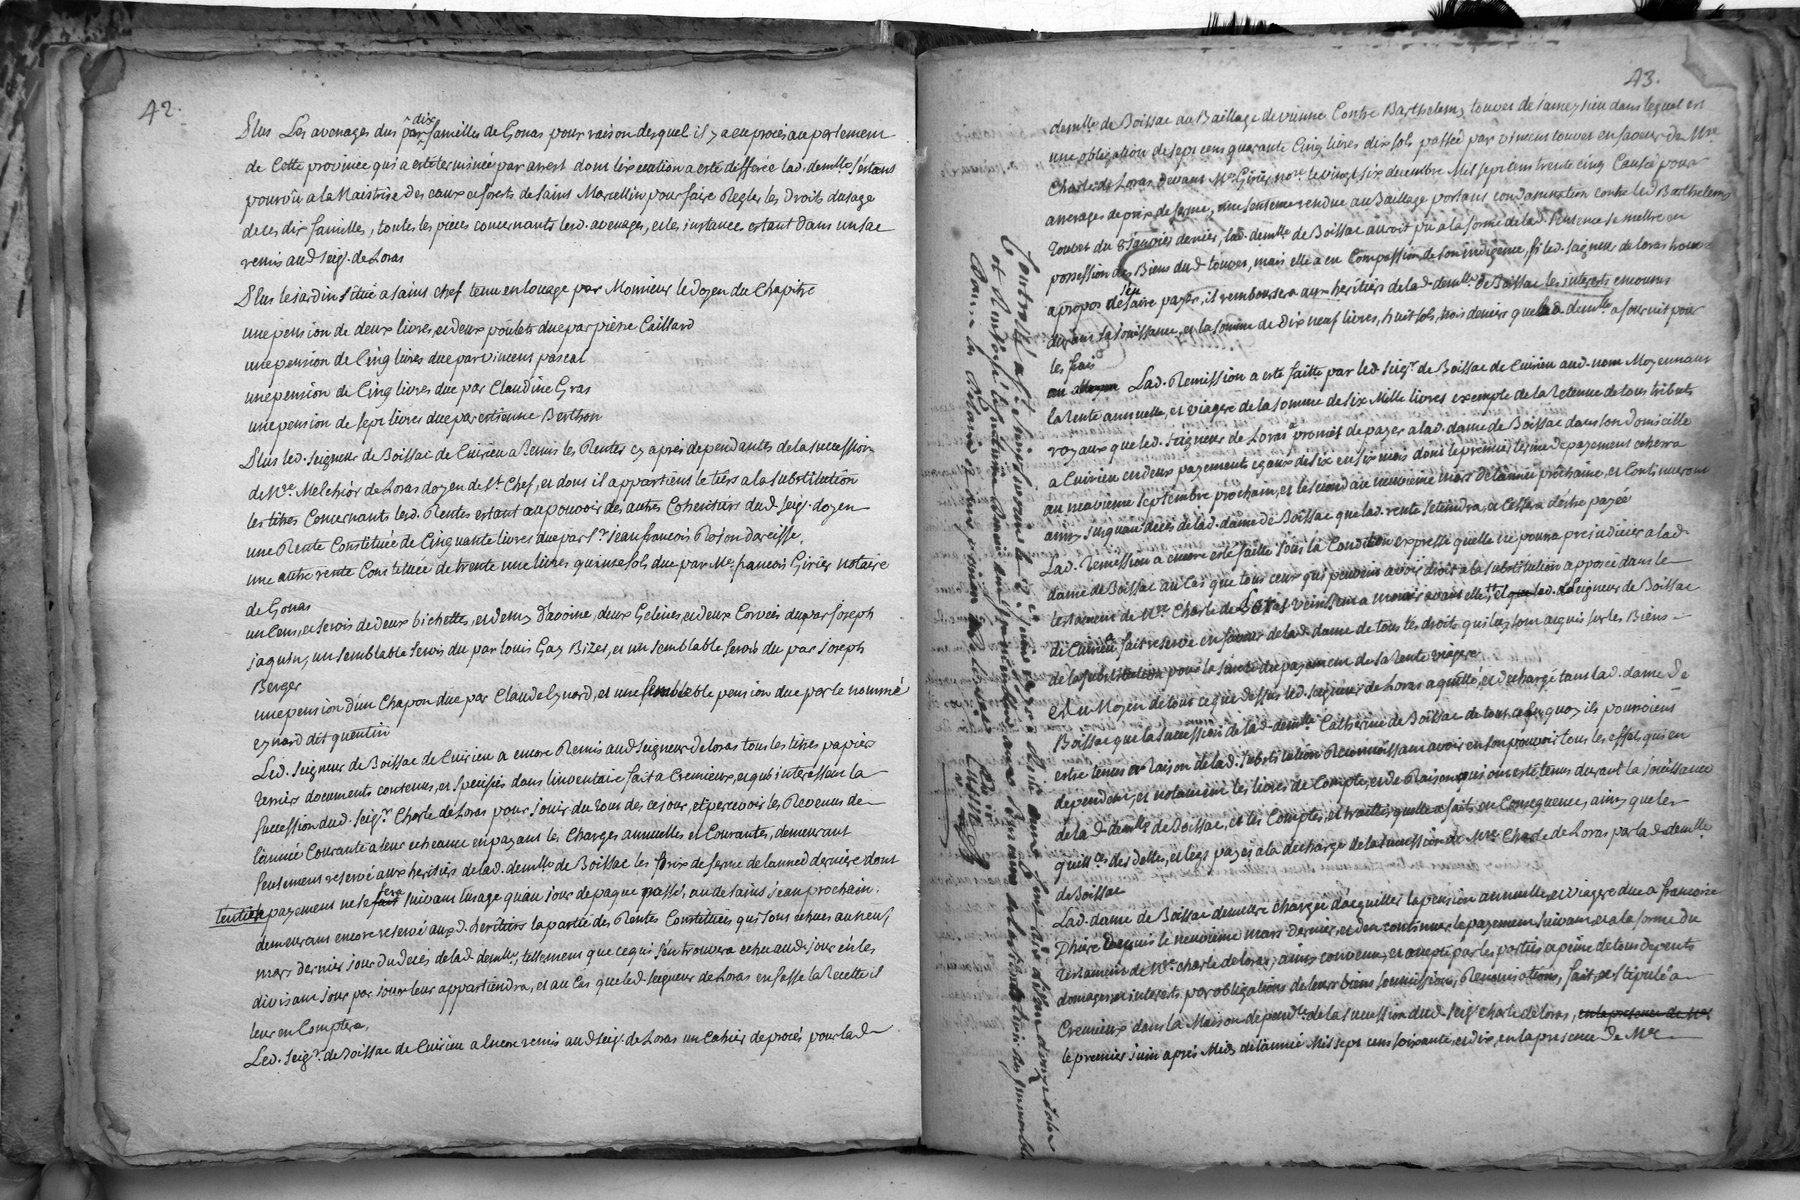 42.
Plus Les avenages dus par dix familles de Gonas pour raison desquel il y a eu procés au parlement
de Cette province qui a esté terminée par arrest dont l'execution a esté differée lad. demlle s'etant
pourvû a la Maistrise des eaux et forets de saint Marcellin pour faire Regler les Droits dusage
de ces dix familles, toutes les pieces concernants lesd. avenages, et les instances estant dans un sac
remis aud seigr. de Loras
Plus le jardin situé a saint chef tenu en louage par Monsieur le doyen du Chapitre
une pension de deux livres, et deux poulets due par pierre Caillard
une pension de Cinq livres due par vincent pascal
une pension de Cinq livres due par Claudine Gras
une pension de sept livres due par estienne Berthon
Plus led. seigneur de Boissac de Cuirieu a Remis les Rentes cy après dependantes de la succession
de Mre Melchior de Loras doyen de St. Chef, et dont il appartient le tiers a la substitution
les titres Concernants lesd. Rentes estant au pouvoir des autres Coheritiers dud seigr. doyen
une Rente Constituée de Cinquante livres due par Sr. jean francois
une autre rente Constituée de trente une livres quinze sols due par Me francois Girier notaire
de Gonas
un Cens, et servis de deux bichettes, et demy d'avoine, deux Gelines, et deux Corvées du par joseph
jaquin, un semblable servis du par louis Gay Bizet, et un semblable servis du par joseph
Berger
une pension d'un Chapon due par Claude Eynard, et une semblable pension due par le nommé
eynard dit quentin
Led. seigneur de Boissac de Cuirieu a encore Remis aud seigneur de loras tous les titres papiers
terriers documents contenus, et specifiés dans l'inventaire fait a Cremieux, et qui interessent la
succession dud. seigr. Charle de Loras pour jouir du tout des ce jour, et percevoir les Revenus de
l'année Courante a leur echeance en payant les Charges annuelles et Courantes, demeurant
seulement reservé aux heritiers de lad. demlle de Boissac les prix de ferme de lannée dernière dont
l'entier payement ne se fera suivant l'usage qu'au jour de paque passé, ou de saint jean prochain.
demeurant encore reservé auxd. heritiers la partie des Rentes Constituées qui sont echues au neuf
mars dernier jour du deces de lad demlle, tellement que ce qui s'en trouvera echu aud. jour en les
divisant jour par jour leur appartiendra, et au Cas que led. seigneur de Loras en fasse la Recette il
leur en Comptera.
Led. seigr. de Boissac de Cuirieu a encore remis aud seigr. de Loras un Cahier de procés pour lad
43.
demlle de Boissac au Baillage de vienne Contre Barthelemy touvet de dans lequel est
une obligation de sept cens quarante Cinq livres dix sols passée par vincent touvet en faveur de Mre
Charle de Loras devant Me Girier nore le vingt six decembre Mil sept cens trente cinq Causé pour
arrerages de prix de ferme, une sentence rendue au Baillage portant condamnation contre led Barthelemy
touvet du 8 janvier dernier, lad. demlle de Boissac auroit pu a la forme de lad. sentence se mettre en
possession des Biens dud touvet, mais elle a eu Compassion de son indigence, si led. seigneur de loras trouve
a propos de s'en faire payer, il remboursera aux heritiers de lad demlle de Boissac les interets encourus
durant sa jouissance, et la somme de Dix neuf livres, huit sols, trois deniers que lad demlle a fournit pour
les frais
Lad. Remission a esté faitte par led. seigr. de Boissac de Cuirieu aud. nom Moyennant
la Rente annuelle, et viagere de la somme de six Mille livres exempte de la Retenue de tous tributs
royaux que led. seigneur de Loras a promet de payer a lad. dame de Boissac dans son domicille
a Cuirieu en deux payements egaux de six en six mois dont le premier terme de payement echerra
au neuvieme septembre prochain, et le second au neuvieme mars de l'année prochaine, et Continueront
ainsy jusquau deces de lad. dame de Boissac que lad. rente s'eteindra, et cessera destre payée
Lad. Remission a encore esté faitte sous la Condition expresse quelle ne pourra prejudicier a lad.
dame de Boissac au Cas que tous ceux qui peuvent avoir droit a la substitution apposée dans le
testament de Mre Charle de Loras vinssent a mourir avant elle, et led. seigneur de Boissac
de Cuirieu fait reserve en faveur de lad. dame de tous les droits qui luy sont acquis sur les Biens
de la substitution pour la sureté du payement de sa Rente viagere
et au Moyen de tout ce que dessus led. seigneur de Loras a quitté, et dechargé tant lad. dame de
Boissac que la succession de lad. demlle Catherine de Boissac de tout ce en quoy ils pourroient
estre tenus en Raison de lad. substitution Reconnoissant avoir en son pouvoir tous les effets qui en
dependent, et notament les livres de Compte, et de Raison qui ont esté tenus durant la jouissance
de lad. demlle de Boissac, et les Comptes, et traittés quelle a faits en Consequence, ainsy que les
quittces des dettes, et legs payés a la decharge de la succession de Mre Charle de Loras par lad. demlle
de Boissac
Lad. dame de Boissac demeure chargée d'acquitter la pension annuelle et viagere due a francoise
depuis le neuvieme mars dernier, et d'en continuer le payement suivant, et a la forme du
testament de Mre charle de loras, ainsy convenu, et accepté par les parties a peine de tous depents
domages et interets par obligations de leurs biens soumissions, Renonciations, fait, et stipulé a
Cremieux dans la Maison dependte. de la succession dud. seigr. charle de loras, en la presence de Me
le premier juin après Midy de l'année Mil sept cens soixante, et dix, en la presence de Me